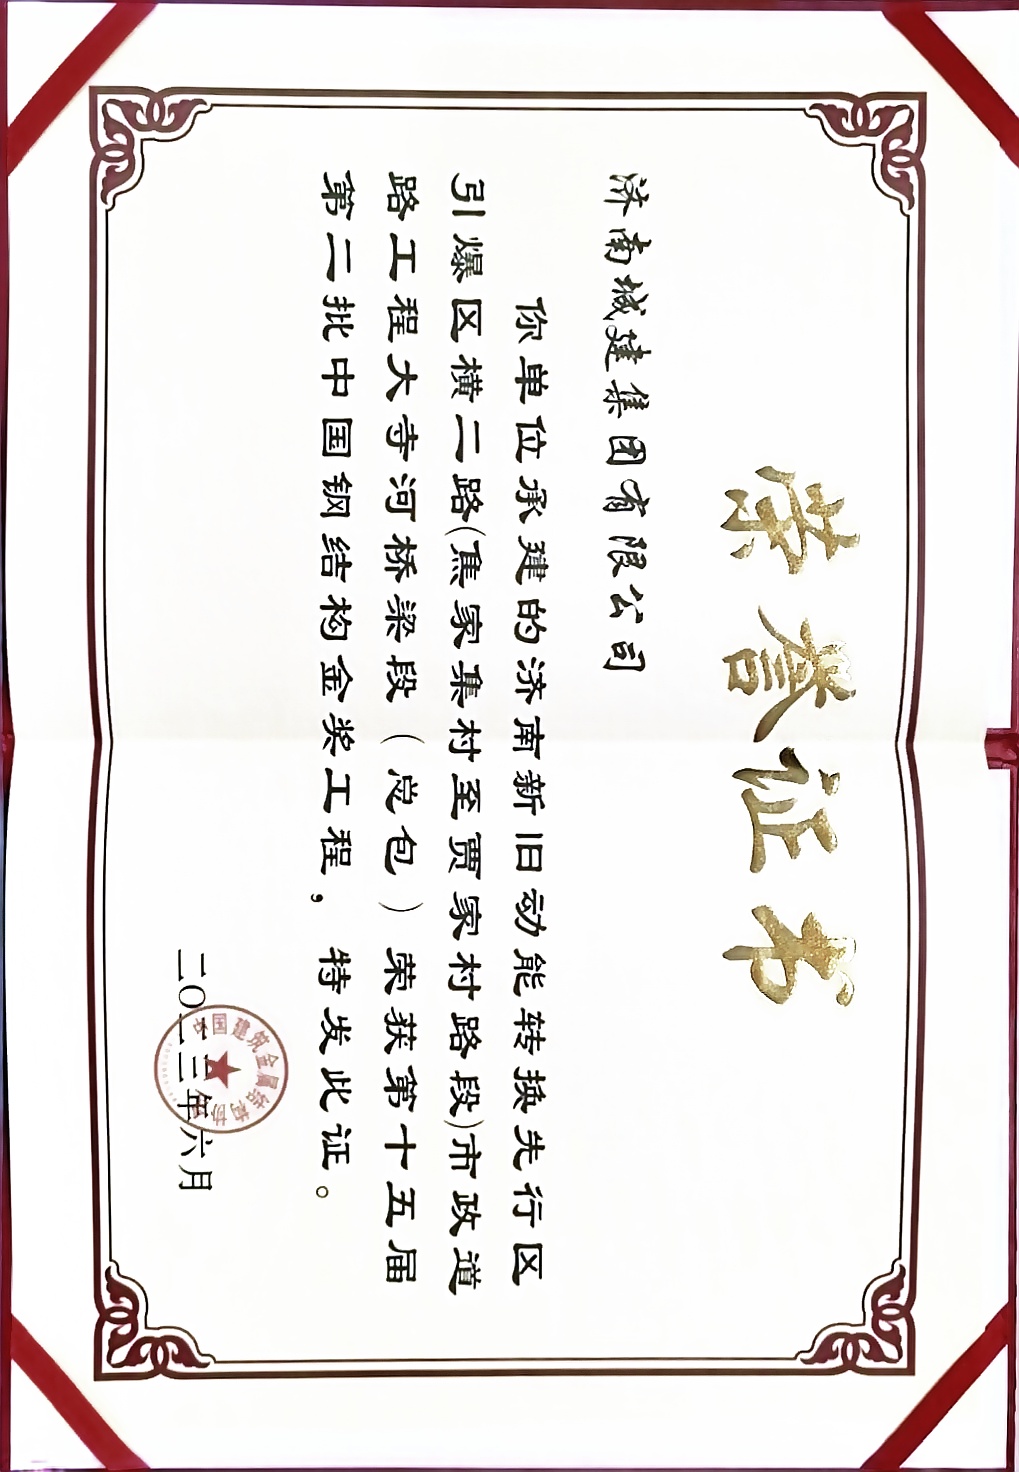 荣誉证书
济南城建集团有限公司
你单位承建的济南新旧动能转换先行区
引爆区横二路(焦家集村至贾家村路段)市政道
路工程大寺河桥梁段（总包）荣获第十五届
第二批中国钢结构金奖工程，特发此证。
中国建筑金属结构协会
二〇二三年六月